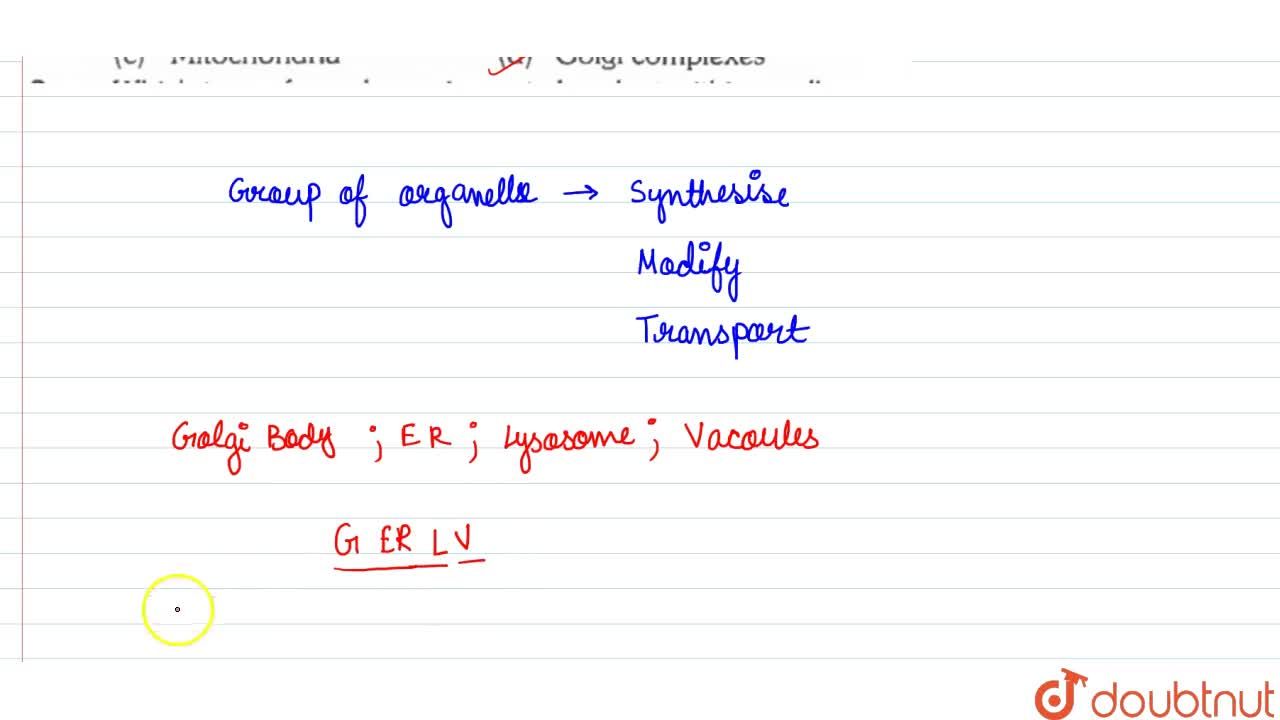 (c) Mitochondria (d) Golgi complexes
Group of organelle → Synthesise
Modify
Transport
Golgi Body ; ER ; Lysosome ; Vacoules
G ER L V
doubtnut